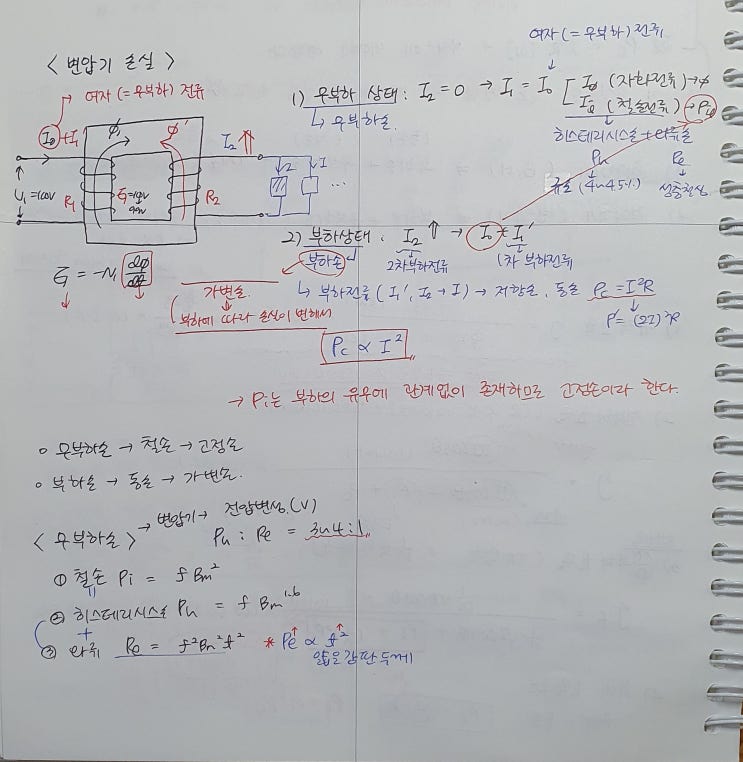 여자(=무부하)전류
<변압기 손실>
여자(=무부하)전류
1) 무부하 상태: I₂=0 → I₁=I₀ [ Iφ (자화전류)→φ
Ii (철손전류)→Pi
↳ 무부하손.
히스테리시스손+와류손
Ph Pe
규소(4~4.5%) 성층철심.
I₀+I₁ φ φ' I₂↑
V₁=100V R₁ R₂ I₂ I ...
2) 부하상태: I₂↑ → I₀+I₁'
2차부하전류 1차 부하전류
부하손
E₁=-N₁ dφ/dt
가변손.
부하에 따라 손실이 변해서
↳ 부하전류(I₁', I₂→I) → 저항손, 동손 Pc=I²R
P'=(2I)²R
Pc ∝ I²
→ Pi는 부하의 유무에 관계없이 존재하므로 고정손이라 한다.
∘ 무부하손 → 철손 → 고정손
∘ 부하손 → 동손 → 가변손.
<무부하손> → 변압기 → 전압변성.(V)
Ph : Pe = 3~4:1
① 철손 Pi = fBm²
② 히스테리시스손 Ph = f Bm^1.6
+
③ 와류 Pe = f²Bm²t² * Pe↑ ∝ t²↑
얇은강판두께